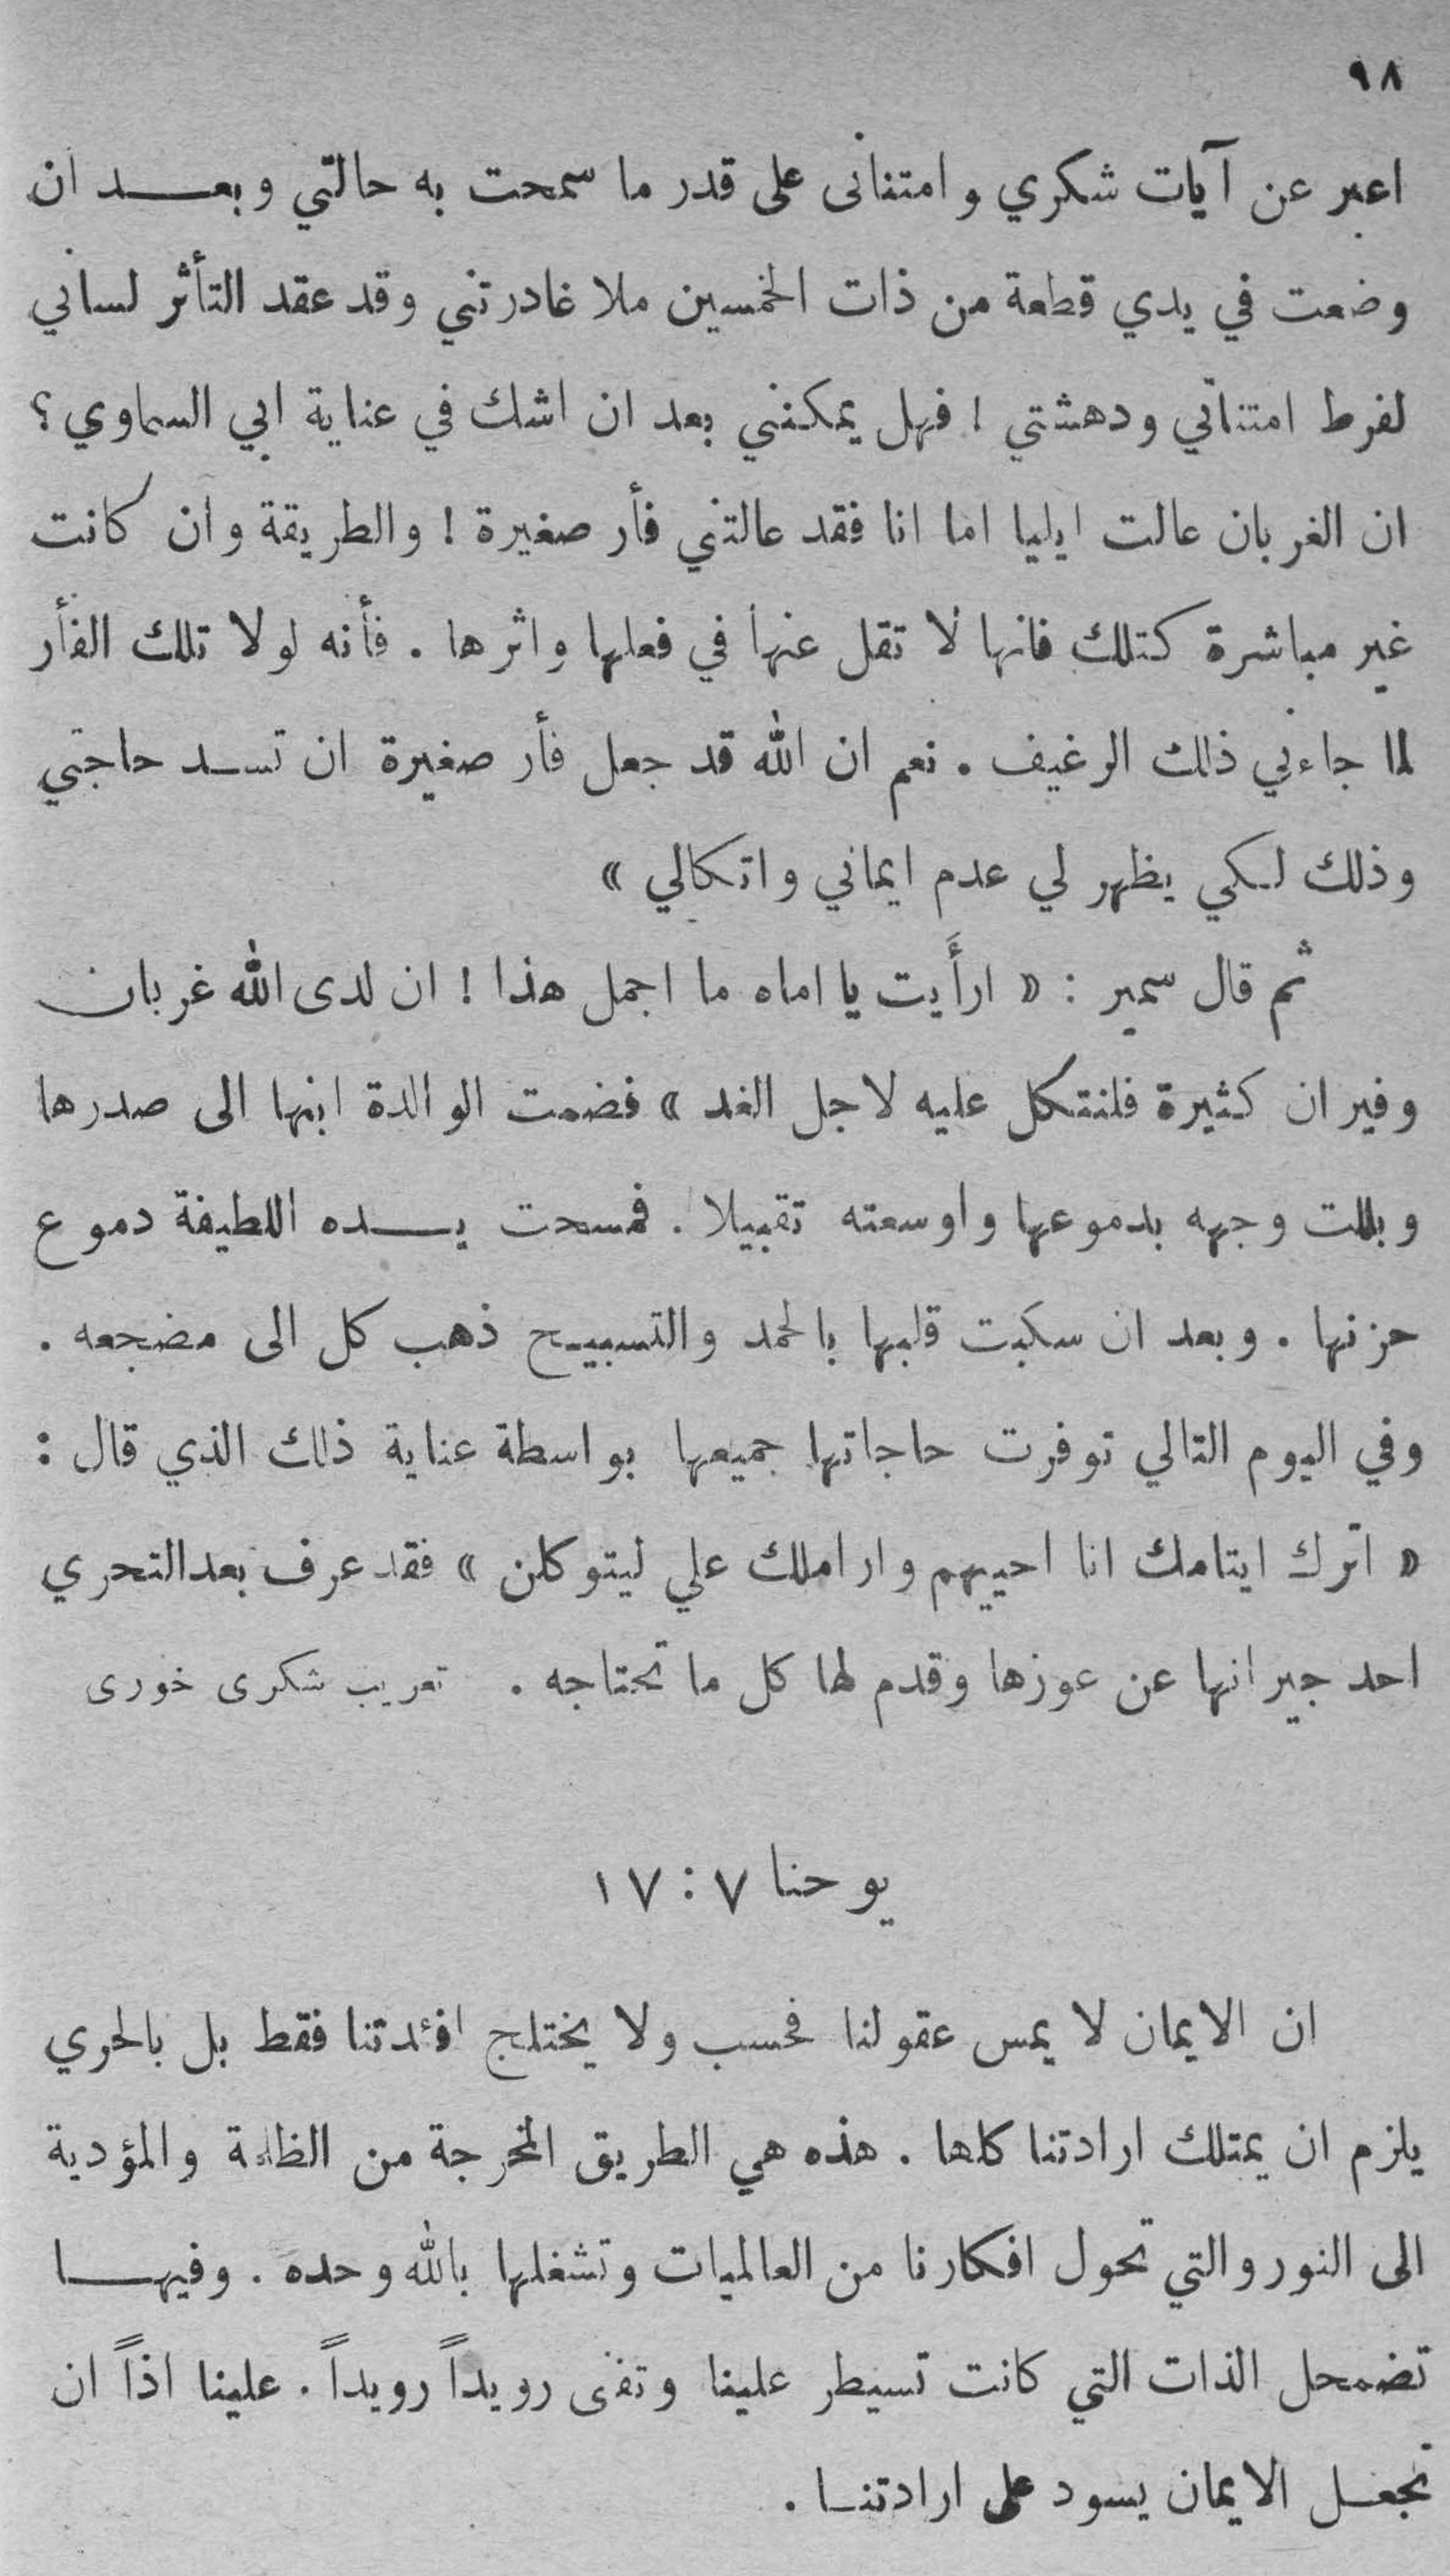 ٩٨
اعبر عن آيات شكري وامتنانى على قدر ما سمحت به حالتي وبعد ان
وضعت في يدي قطعة من ذات الخمسين ملا غادرتني وقد عقد التأثر لساني
لفرط امتناني ودهشتي ! فهل يمكنني بعد ان اشك في عناية ابي السماوي ؟
ان الغربان عالت ايليا اما انا فقد عالتني فأر صغيرة ! والطريقة وان كانت
غير مباشرة كتلك فانها لا تقل عنها في فعلها واثرها . فأنه لولا تلك الفأر
لما جاءني ذلك الرغيف . نعم ان الله قد جعل فأر صغيرة ان تسد حاجتي
وذلك لكي يظهر لي عدم ايماني واتكالي »
ثم قال سمير : « ارأَيت يا اماه ما اجمل هذا ! ان لدى الله غربان
وفيران كثيرة فلنتكل عليه لاجل الغد » فضمت الوالدة ابنها الى صدرها
وبللت وجهه بدموعها واوسعته تقبيلا . فمسحت يده اللطيفة دموع
حزنها . وبعد ان سكبت قلبها بالحمد والتسبيح ذهب كل الى مضجعه .
وفي اليوم التالي توفرت حاجاتها جميعها بواسطة عناية ذلك الذي قال :
« اترك ايتامك انا احييهم واراملك علي ليتوكلن » فقد عرف بعدالتحري
احد جيرانها عن عوزها وقدم لها كل ما تحتاجه . تعريب شكرى خورى
يوحنا ٧ : ١٧
ان الايمان لا يمس عقولنا فحسب ولا يختلج افئدتنا فقط بل بالحري
يلزم ان يمتلك ارادتنا كلها . هذه هي الطريق المخرجة من الظلمة والمؤدية
الى النور والتي تحول افكارنا من العالميات وتشغلها بالله وحده . وفيها
تضمحل الذات التي كانت تسيطر علينا وتفى رويداً رويداً . علينا اذاً ان
نجعل الايمان يسود على ارادتنا .